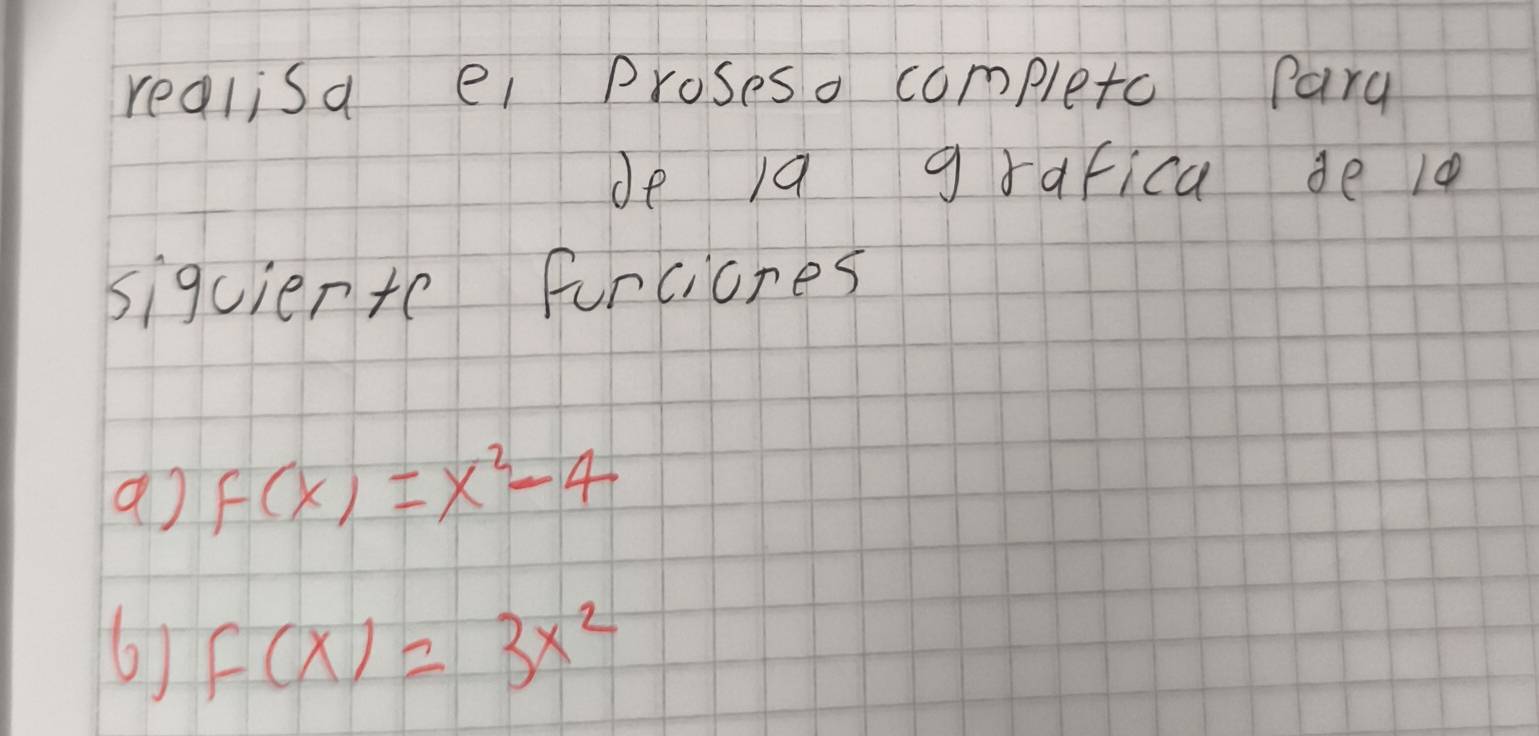 realisa el Proseso completo Para
de la grafica de la
siguiente funciones
a) F(x) = x² - 4
b) F(x) = 3x²